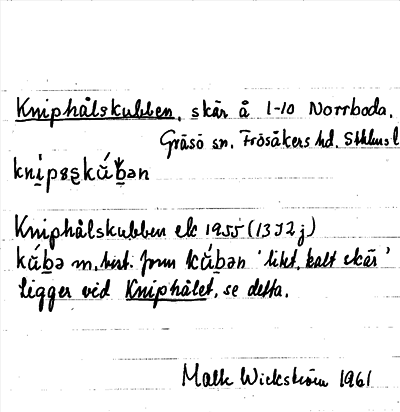 Kniphålskubben, skär å 1-10 Norrboda,
Gräsö sn. Frösåkers hd. Sthlms l
kni̱psskú̱ḇən
Kniphålskubben ek 1955 (13 I 2 j)
kú̱ḇə m, best. form kú̱ḇən 'litet, kalt skär'
ligger vid Kniphålet, se detta.
Malk Wickström 1961